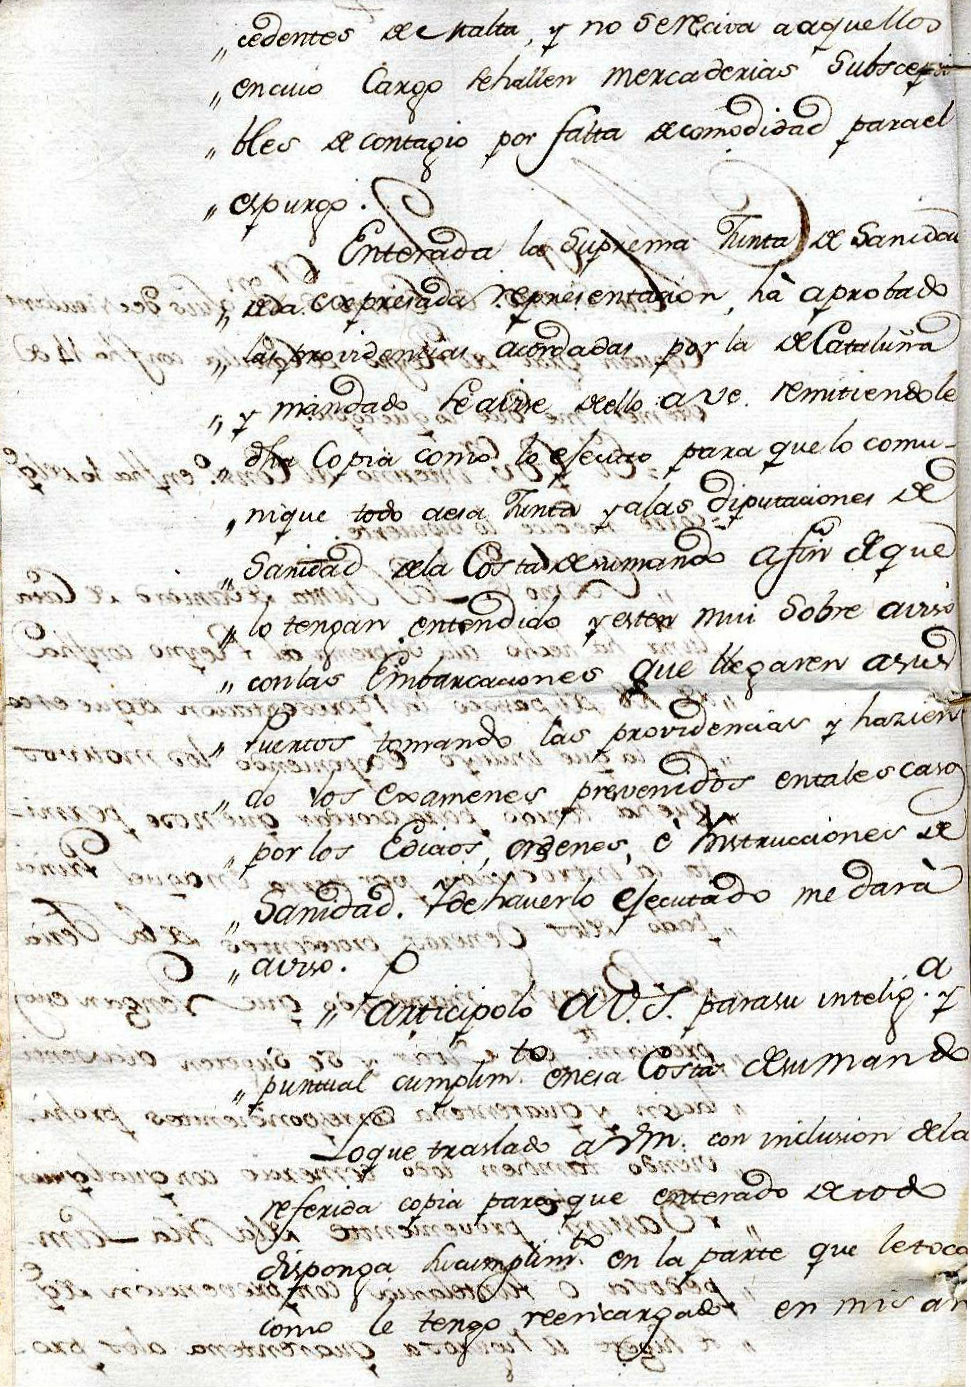 „ cedentes de Malta, y no se reciva a aquellos
„ en cuio Cargo se hallen mercaderias Subscepti
„ bles de contagio por falta de comodidad para el
„ espurgo.
Enterada la Suprema Junta de Sanidad
„ de da. expresada representacion, hà aprobado
„ las providencias acordadas por la de Cataluña
„ y mandado se avise de ello a Ve. remitiendole
„ dha Copia como lo ejecuto para que lo comu-
„ nique todo a esa Junta y a las Diputaciones de
„ Sanidad de la Costa de su mando a fin de que
„ lo tengan entendido y esten mui Sobre aviso
„ con las Embarcaciones que llegaren a sus
„ Puertos tomando las providencias y hazien
„ do los examenes prevenidos en tales casos
„ por los Edictos, ordenes, è Instrucciones de
„ Sanidad. Y de haverlo ejecutado me darà
„ aviso.
„ Anticipolo a V.S. para su intelig.a y
„ puntual cumplim.to en esa Costa de su mando
Lo que traslado a Vm. con inclusion de la
referida copia para que enterado de todo
disponga su cumplim.to en la parte que le toca
como le tengo reencargado en mis an